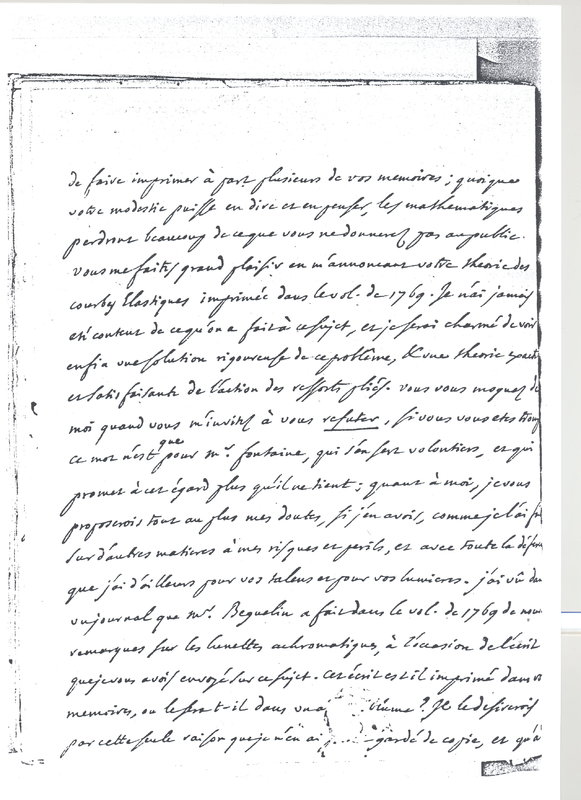 de faire imprimer à part plusieurs de vos memoires ; quoique
votre modestie puisse en dire et en penser, les mathematiques
perdront beaucoup de ce que vous ne donnerez pas au public.
vous me faites grand plaisir en m'annoncant votre theorie des
courbes Elastiques imprimée dans le vol. de 1769. Je n'ai jamais
eté content de ce qu'on a fait à ce sujet, et je serai charmé de voir
enfin une solution rigoureuse de ce problême, & une theorie exacte
et satisfaisante de l'action des ressorts pliés. vous vous moquez de
moi quand vous m'invitez à vous refuter, si vous vous etes trompé
ce mot n'est que pour mr. fontaine, qui s'en sert volontiers, et qui
promet à cet égard plus qu'il ne tient ; quant à moi, je vous
proposerois tout au plus mes doutes, si j'en avois, comme je l'ai
sur d'autres matieres à mes risques et perils, et avec toute la
que j'ai d'ailleurs pour vos talens et pour vos lumieres. j'ai vû dans
un journal que mr. Beguelin a fait dans le vol. de 1769 de
remarques sur les lunettes achromatiques, à l'occasion de l'écrit
que je vous avois envoyé sur ce sujet. Cet écrit est il imprimé dans vos
memoires, ou le sera-t-il dans un ? Je le desirerois
par cette seule raison que je n'en ai gardé de copie, et qu'à